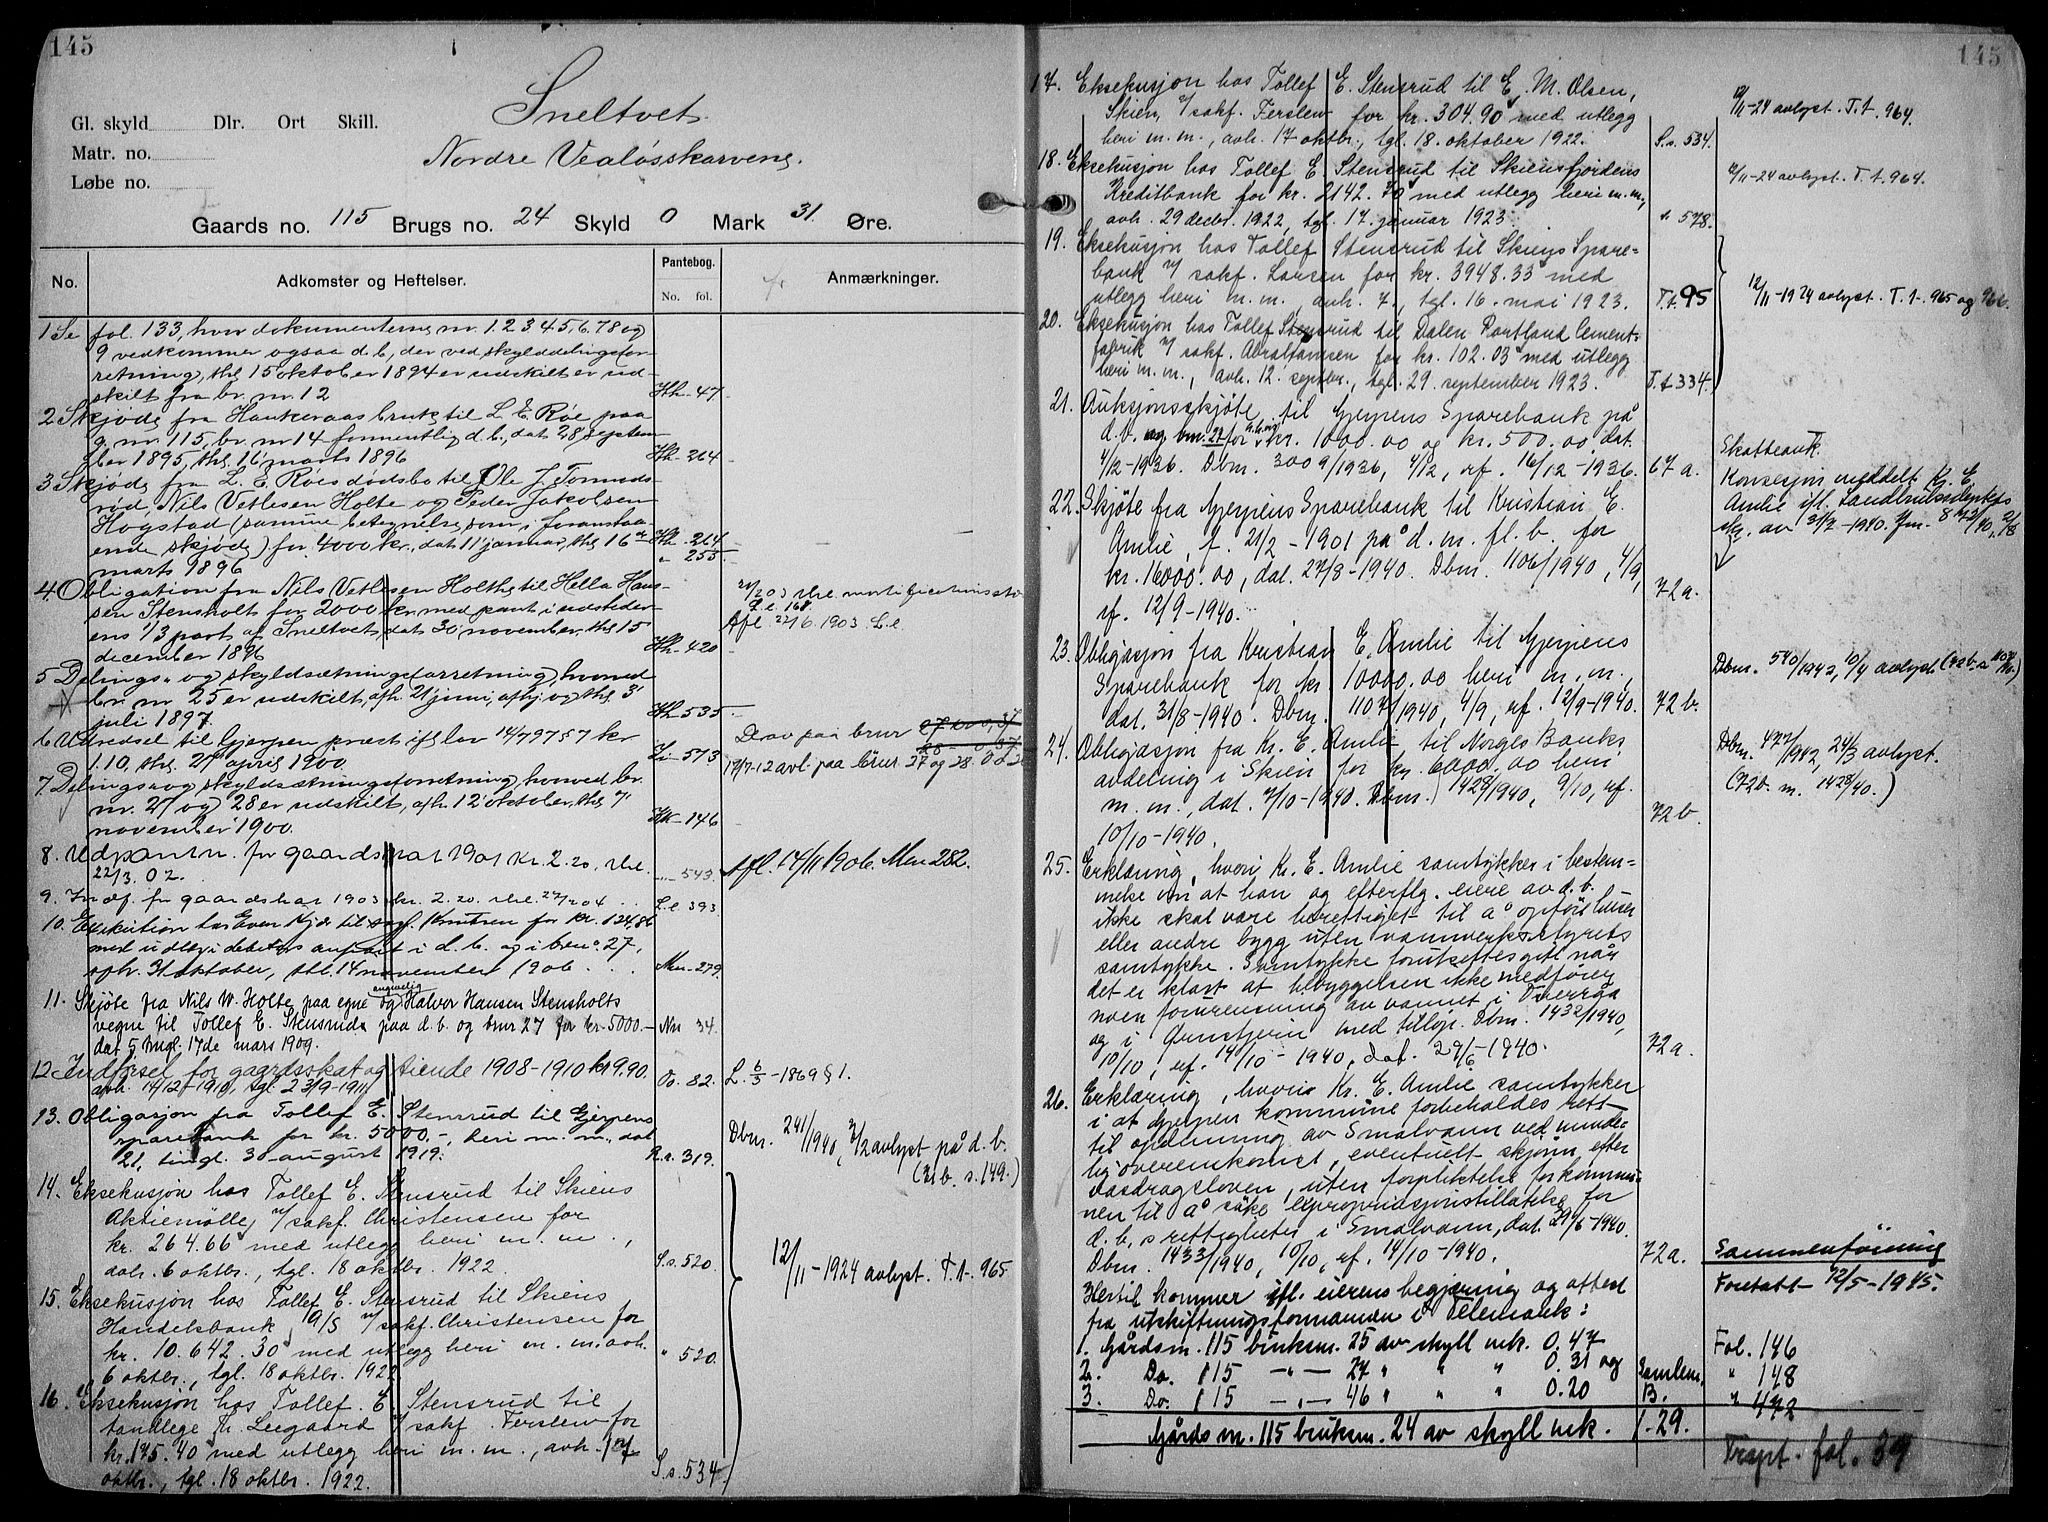 145
Sneltvet.
Gl. skyld Dlr. Ort Skill.
Matr. no.
Nordre Vealøsskarvene.
Løbe no.
Gaards no. 115 Brugs no. 24 Skyld 0 Mark 31 Øre.
No. Adkomster og Heftelser. Pantebog. No. fol. Anmærkninger.
1 Se fol. 133, hvor dokumenterne nr. 1.2.3.4.5.6.7.8 og
9 vedkommer ogsaa d. b., der ved skylddelingsfor-
retning, thl. 15 oktober 1894 er udskilt er ud-
skilt fra br. nr. 12 Hh - 47
2 Skjøde fra Hankeraas bruk til L. E. Røe paa
g. nr. 115, br. nr 14 formentlig d. b., dat 28 septem-
ber 1895, thl. 16 marts 1896 Hh - 264
3 Skjøde fra L. E. Røes dødsbo til Ole J. Tormods-
rød, Nils Vetlesen Holte og Peder Jakobsen
Hogstad (samme betegnelse som i foranstaa-
ende skjøde) for 4000 kr., dat 11 januar, thl. 16de Hh - 264
marts 1896 " 255
4. Obligation fra Nils Vetlesen Holthe til Hella Han-
sen Stensholt for 2000 kr. med pant i udsteder-
ens 1/3 part af Sneltvet, dat 30 november, thl. 15
december 1896 Hh - 420
Afl. 22/6 1903 L.e
5 Delings- og skyldsætningsforretning, hvorved
br. nr 25 er udskilt, afh. 21 juni, afhj. og thl. 3
juli 1897. Hh - 535
6 Udredsel til Gjerpen præst ifl. lov 14/7 97 57 kr
1.10, thl. 27 april 1900 Ii - 573
19/7-12 avl. paa brnr 27 og 28
7 Delings- og skyldsætningsforretning, hvorved br.
nr. 27 og 28 er udskilt, afh. 12 oktober, thl. 7
november 1900. Kk - 146
8. Udpantn. for gaardskat 1901 kr. 2.20, thl.
22/3. 02. " 543. Afl. 14/11 1906. Mm 282.
9. Indf. for gaardskat 1903 kr. 2.20. thl. 27/2 04 L.l. 393
10. Exekution hos Even Kjær til sagf. Knutsen for kr. 124,86
med udlæg i debitors anpart i d. b. og i brnr. 27,
aph. 31 oktober, thl. 14 november 1906 Mm - 279
11. Skjøte fra Nils W. Holte paa egne og angivelig Halvor Hansen Stensholts
vegne til Tollef E. Stensruds paa d. b. og brnr 27 for kr. 5000.- Nn 34.
dat. 5 tingl. 17de mars 1909.
12 Indførsel for gaardsskat og tiende 1908-1910 kr 9.90.
avh. 14/12-1910, tgl. 23/9-1911 Oo. 82. L. 6/3 - 1869 § 1.
13. Obligasjon fra Tollef E. Stensrud til Gjerpens
sparebank for kr. 5000.-, heri m. m., dat
21, tingl. 30 august 1919. R.r. 319.
Dbnr. 241/1940, 7/2 avlyst på d. b.
(21 b. s. 149.)
14. Eksekusjon hos Tollef E. Stensrud til Skiens
Aktiemølle, v/ sakf. Christensen for
kr. 264.66 med utlegg heri m. m.,
avh. 6 oktbr., tgl. 18 oktbr. 1922. S.s. 520.
12/11 - 1924 avlyst. T.t. 965
15. Eksekusjon hos Tollef E. Stensrud til Skiens
Handelsbank 19/5 v/ sakf. Christensen for
kr. 10.642.30 med utlegg heri m. m. avh.
6 oktbr., tgl. 18 oktbr. 1922 " 520.
16. Eksekusjon hos Tollef E. Stensrud til
tandlege Th. Leegaard v/ sakf. Ferslew for
kr. 145.40 med utlegg heri m. m., avh. 17
oktbr., tgl. 18 oktbr. 1922. S.s. 534
145
17. Eksekusjon hos Tollef E. Stensrud til E. M. Olsen,
Skien, v/ sakf. Ferslew for kr. 304.90 med utlegg
heri m. m., avh. 17 oktbr., tgl. 18. oktober 1922. S.s. 534.
12/11-24 avlyst. T.t. 964.
18. Eksekusjon hos Tollef E. Stensrud til Skiensfjordens
Kreditbank for kr. 2142.70 med utlegg heri m. m.,
avh. 29 decbr. 1922, tgl. 17. januar 1923. s. 578.
12/11-24 avlyst. T.t. 964.
19. Eksekusjon hos Tollef Stensrud til Skiens Spare-
bank v/ sakf. Larsen for kr. 3948.33 med
utlegg heri m. m., avh. 7., tgl. 16. mai 1923. T.t. 95
12/11-1924 avlyst. T.t. 965 og 966.
20. Eksekusjon hos Tollef Stensrud til Dalen Portland Cement-
fabrik v/ sakf. Abrahamsen for kr. 102.03 med utlegg
heri m. m., avh. 12. septbr., tgl. 29. september 1923. T.t. 334.
21. Auksjonsskjøte til Gjerpens Sparebank på
d. b. og bnr. 27 for h.h.v. kr. 1000.00 og kr. 500.00, dat.
4/12-1936. Dbnr. 3009/1936, 4/12, ref. 16/12-1936. 67 a.
Skatteank.
Konsesjon meddelt Kr. E.
Amlie ifl. Landbruksdeptets
skr. av 31/7 - 1940. Jnr.
22. Skjøte fra Gjerpens Sparebank til Kristian E.
Amlie, f. 21/2 - 1901 på d. m. fl. b. for
kr. 16000.00, dat. 27/8 - 1940. Dbnr. 1106/1940, 4/9,
rf. 12/9 - 1940. 72 a.
23. Obligasjon fra Kristian E. Amlie til Gjerpens
Sparebank for kr. 10000.00 heri m. m.,
dat. 31/8-1940. Dbnr. 1107/1940, 4/9, rf. 12/9-1940. 72 b.
Dbnr. 540/1942, 10/4 avlyst
24. Obligasjon fra Kr. E. Amlie til Norges Banks
avdeling i Skien for kr. 6000.00 heri
m. m., dat. 7/10-1940. Dbnr. 1428/1940, 9/10, rf.
10/10-1940. 72 b.
Dbnr. 477/1942, 24/3 avlyst.
(72 b. nr. 1428/40.)
25. Erklæring, hvori Kr. E. Amlie samtykker i bestem-
melse om at han og efterflg. eiere av d. b.
ikke skal være berettiget til å opføre huser
eller andre bygg uten vannverksstyrets
samtykke. Samtykke forutsettes gitt når
det er klart at bebyggelsen ikke medfører
noen forurensning av vannet i Överråa
og i Ørnstjern med tilløp. Dbnr. 1432/1940,
10/10, rf. 14/10 - 1940. dat. 29/6-1940. 72 a.
26. Erklæring, hvori Kr. E. Amlie samtykker
i at Gjerpen kommune forbeholdes rett
til opdemning av Smalvann ved minde-
lig overenskomst, eventuelt skjønn efter
vasdragsloven, uten forpliktelse for kommu-
nen til å søke expropriasjonstillatelse for
d. b.s rettigheter i Smalvann, dat. 29/6-1940.
Dbnr. 1433/1940, 10/10, rf. 14/10 - 1940. 72 a.
Sammenføining
Foretatt 12/5 - 1945.
Hertil kommer ifl. eierens begjæring og attest
fra utskiftningsformannen i Telemark:
1. Gårdsnr. 115 bruksnr. 25 av skyll mk. 0.47 Fol. 146
2. Do. 115 -"- 27 " " " 0.31 og " 148
3. Do. 115 -"- 46 " " " 0.20 " 472
Samlem. B.
Gårdsnr. 115 bruksnr. 24 av skyll mk. 1.29.
Trspt. fol. 39